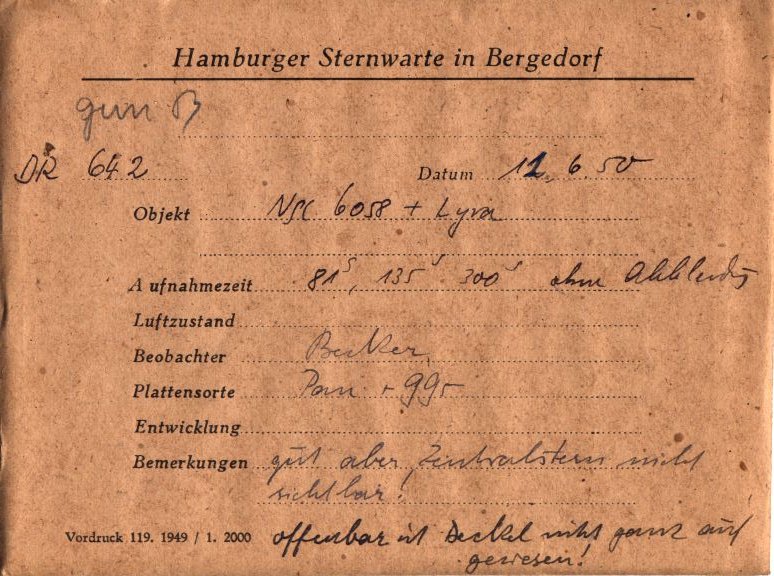 Hamburger Sternwarte in Bergedorf
DR 642 Datum 12. 6. 50
Objekt NGC 6058 + Lyra
Aufnahmezeit 81s, 135s 300s ohne
Luftzustand
Beobachter Becker
Plattensorte Pan
Entwicklung
Bemerkungen gut aber Zentralstern nicht
sichtbar!
Vordruck 119. 1949 / 1. 2000 offenbar ist Deckel nicht ganz auf
gewesen!